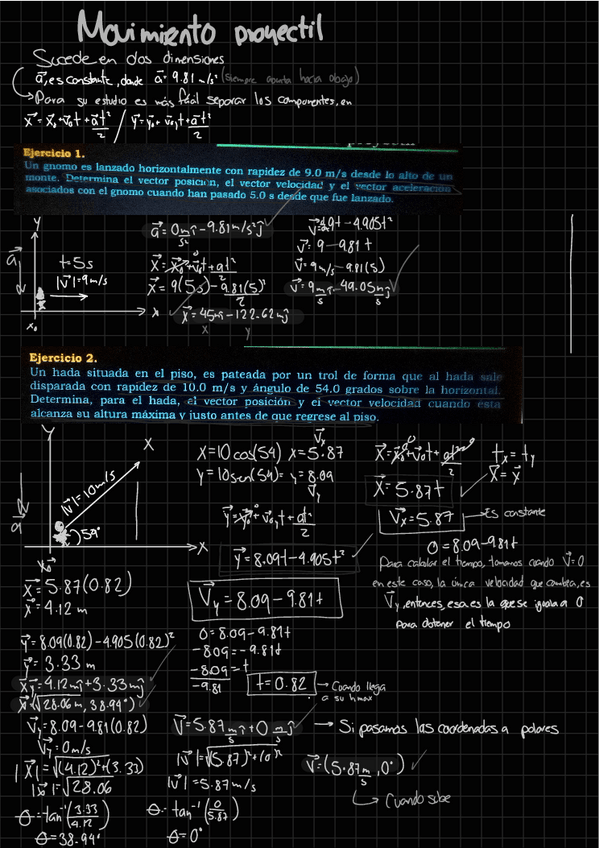 Movimiento proyectil
Sucede en dos dimensiones
a⃗, es constante, donde a⃗= 9.81 m/s² (siempre apunta hacia abajo)
→Para su estudio es más fácil separar los componentes, en
x⃗=x⃗₀+v⃗₀t+a⃗t²/2 / y⃗=y⃗₀+v⃗₀yt+a⃗t²/2
Ejercicio 1.
Un gnomo es lanzado horizontalmente con rapidez de 9.0 m/s desde lo alto de un
monte. Determina el vector posición, el vector velocidad y el vector aceleración
asociados con el gnomo cuando han pasado 5.0 s desde que fue lanzado.
y
a⃗
t=5s
|v⃗|=9m/s
x
x₀
a⃗=0m/s² î-9.81m/s² ĵ
x⃗=x⃗₀+v⃗₀t+at²/2
x⃗=9(5s)-9.81(5)²/2
x⃗=45mî-122.62mĵ
x y
v⃗=9t-4.905t²
v⃗=9-9.81t
v⃗=9m/s-9.81(5)
v⃗=9m/s î-49.05m/s ĵ
Ejercicio 2.
Un hada situada en el piso, es pateada por un trol de forma que al hada sale
disparada con rapidez de 10.0 m/s y ángulo de 54.0 grados sobre la horizontal.
Determina, para el hada, el vector posición y el vector velocidad cuando esta
alcanza su altura máxima y justo antes de que regrese al piso.
y
x
|v⃗|=10m/s
a⃗
54°
x
x₀
x=10cos(54) x=5.87
v⃗x
y=10sen(54)= y=8.09
v⃗y
y⃗=y⃗₀+v⃗₀yt+at²/2
y⃗=8.09t-4.905t²
V⃗y=8.09-9.81t
x⃗=x⃗₀+v⃗₀t+at²/2
tx=ty
x⃗=y⃗
x⃗=5.87t
V⃗x=5.87 →Es constante
0=8.09-9.81t
Para calcular el tiempo, tomamos cuando v⃗=0
en este caso, la única velocidad que cambia, es
V⃗y, entonces, esa es la que se iguala a 0
para obtener el tiempo
x⃗=5.87(0.82)
x⃗=4.12 m
y⃗=8.09(0.82)-4.905(0.82)²
y⃗=3.33 m
x⃗y=4.12mî+3.33mĵ
x⃗=(√28.06m, 38.94°)
V⃗y=8.09-9.81(0.82)
V⃗y=0m/s
|x⃗|=√(4.12)²+(3.33)
|x⃗|=√28.06
θ=tan⁻¹(3.33/4.12)
θ=38.94°
0=8.09-9.81t
-8.09=-9.81t
-8.09/-9.81=t
t=0.82 →Cuando llega
a su hmax
v⃗=5.87m/s î+0m/s ĵ → Si pasamos las coordenadas a polares
|v⃗|=√(5.87)²+(0)²
|v⃗|=5.87m/s
θ=tan⁻¹(0/5.87)
θ=0°
v⃗=(5.87m/s, 0°)
→Cuando sube